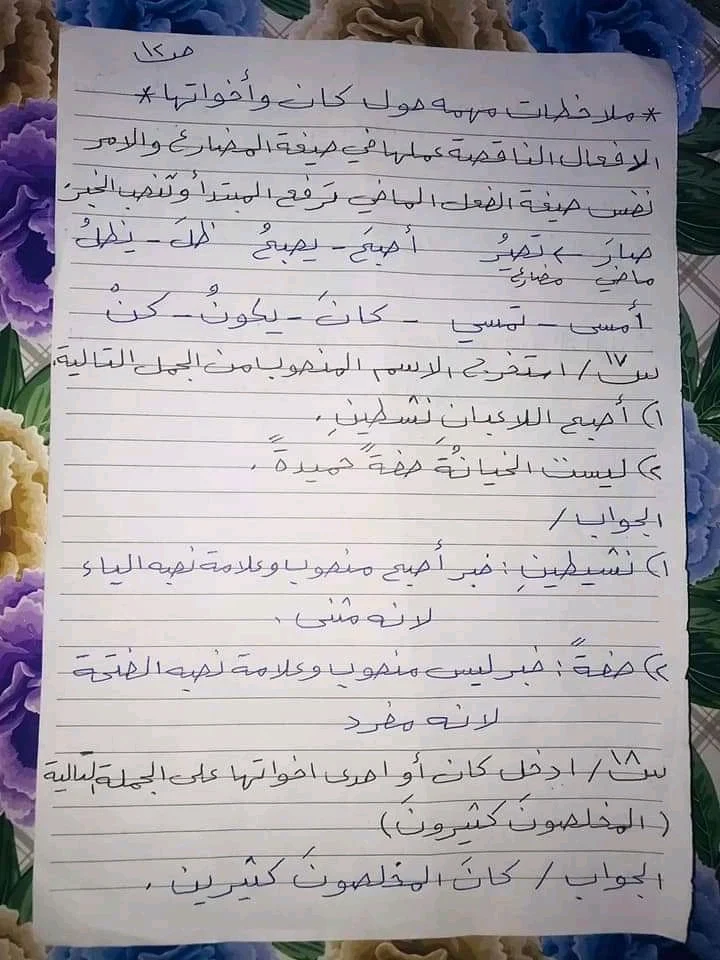 ص١٢
* ملاحظات مهمه حول كان وأخواتها *
الافعال الناقصة عملها في صيغة المضارع والامر
نفس صيغة الفعل الماضي ترفع المبتدأ وتنصب الخبرَ
صارَ ← تصيرُ أصبحَ - يصبحُ ظلَ - يظلُ
ماضي مضارع
أمسى - تمسي - كانَ - يكونُ - كنْ
س١٧/ استخرج الاسم المنصوب من الجمل التالية.
١) أصبح اللاعبان نشطينِ.
٢) ليست الخيانةُ صفةً حميدةً.
الجواب /
١) نشيطينِ : خبر أصبح منصوب وعلامة نصبه الياء
لانه مثنى .
٢) صفةً : خبر ليس منصوب وعلامة نصبه الفتحة
لانه مفرد
س١٨/ ادخل كان أو احدى اخواتها على الجملة التالية
(المخلصونَ كثيرونَ)
الجواب / كانَ المخلصونَ كثيرين .